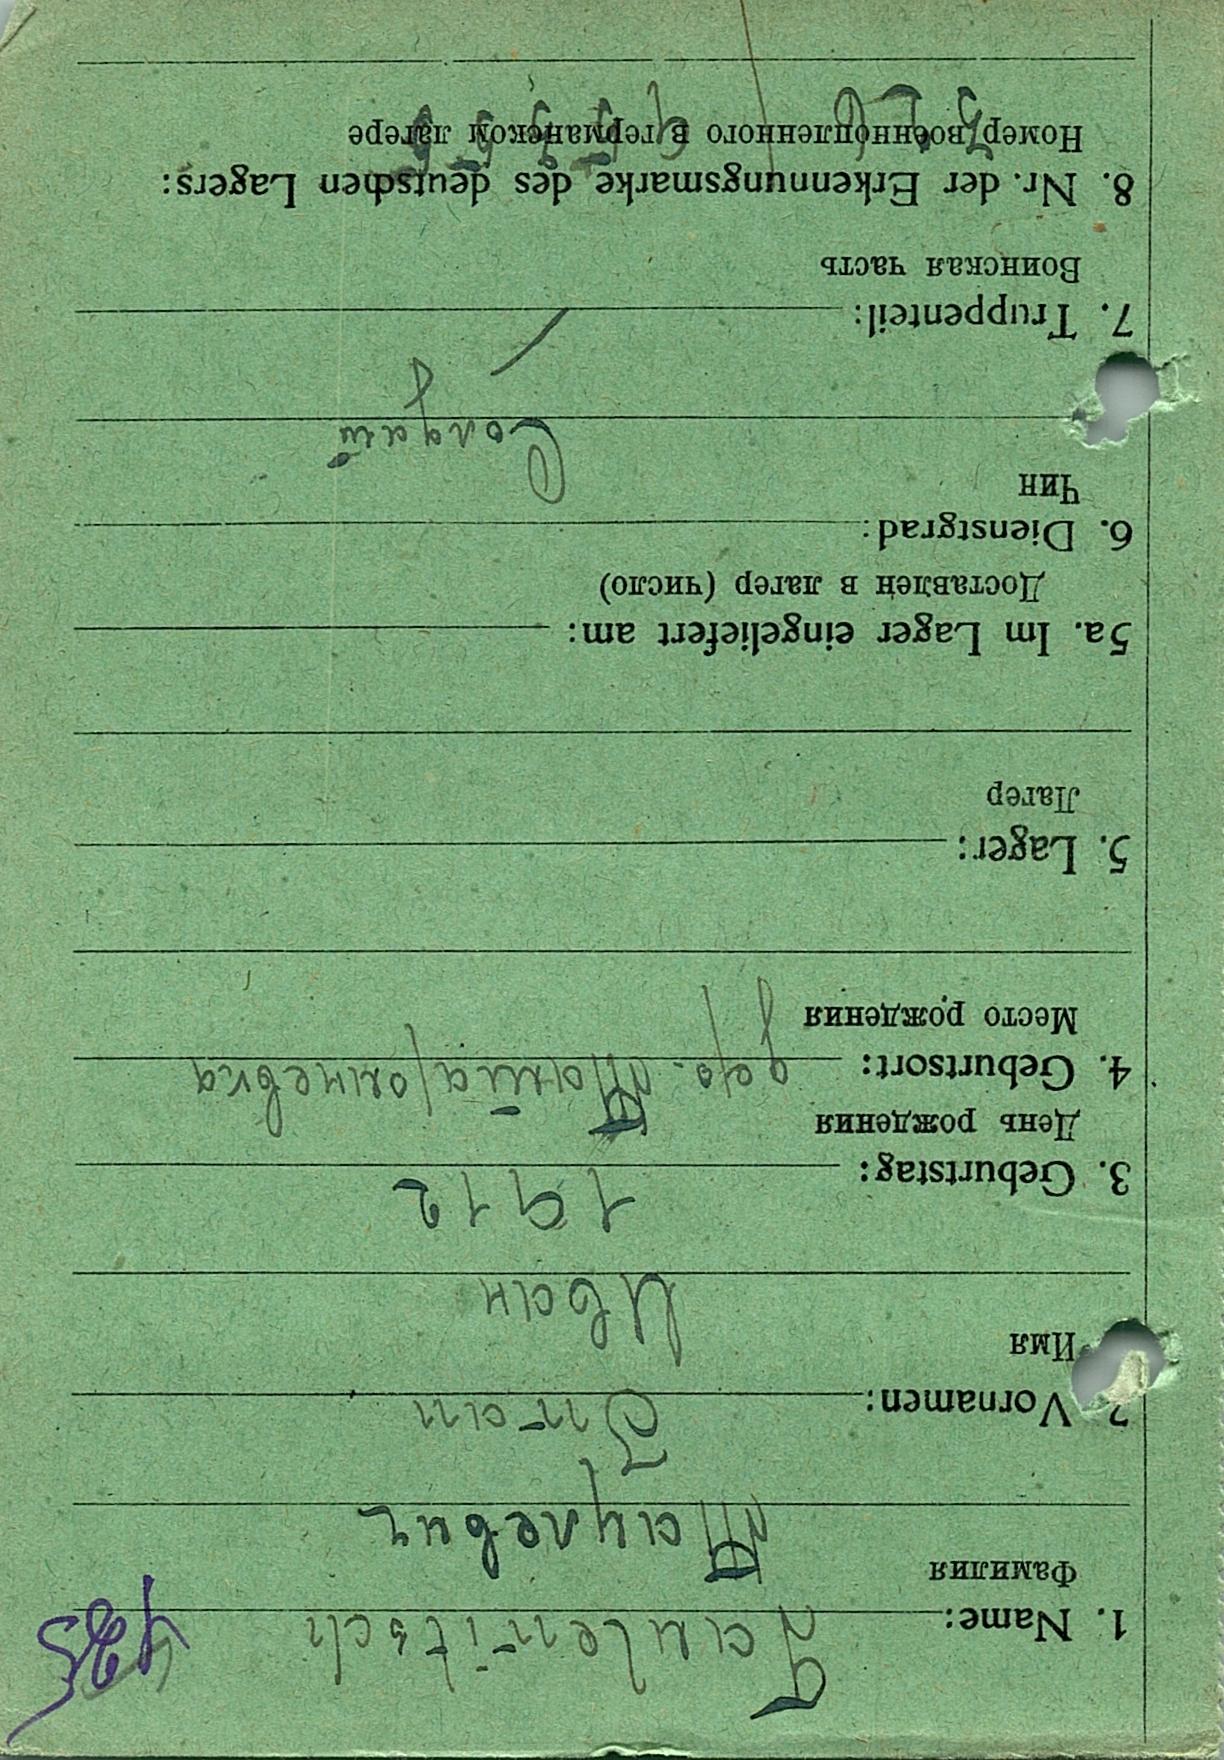 1. Name: Taulewitsch
Фамилия
Таулевич
2. Vornamen: Iwan
Имя
Иван
3. Geburtstag: 1912
День рождения
4. Geburtsort: дер.
Место рождения
5. Lager:
Лагер
5a. Im Lager eingeliefert am:
Доставлен в лагер (число)
6. Dienstgrad:
Чин
Солдат
7. Truppenteil:
Воинская часть
8. Nr. der Erkennungsmarke des deutschen Lagers:
Номер военнопленного в германской лагере